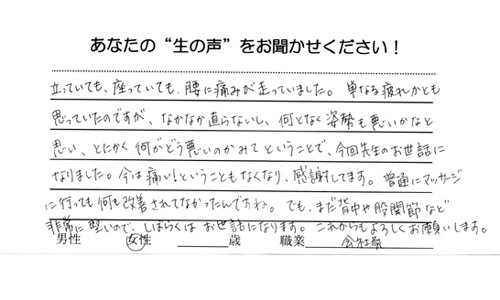 あなたの“生の声”をお聞かせください！
立っていても、座っていても、腰に痛みが走っていました。単なる疲れかとも
思っていたのですが、なかなか直らないし、何となく姿勢も悪いかなと
思い、とにかく何がどう悪いのかみてということで、今回先生のお世話に
なりました。今は痛い！ということもなくなり、感謝してます。普通にマッサージ
に行っても何も改善されてなかったんですね。でも、まだ背中や股関節など
非常に堅いので、しばらくはお世話になります。これからもよろしくお願いします。
男性 女性 歳 職業 会社員